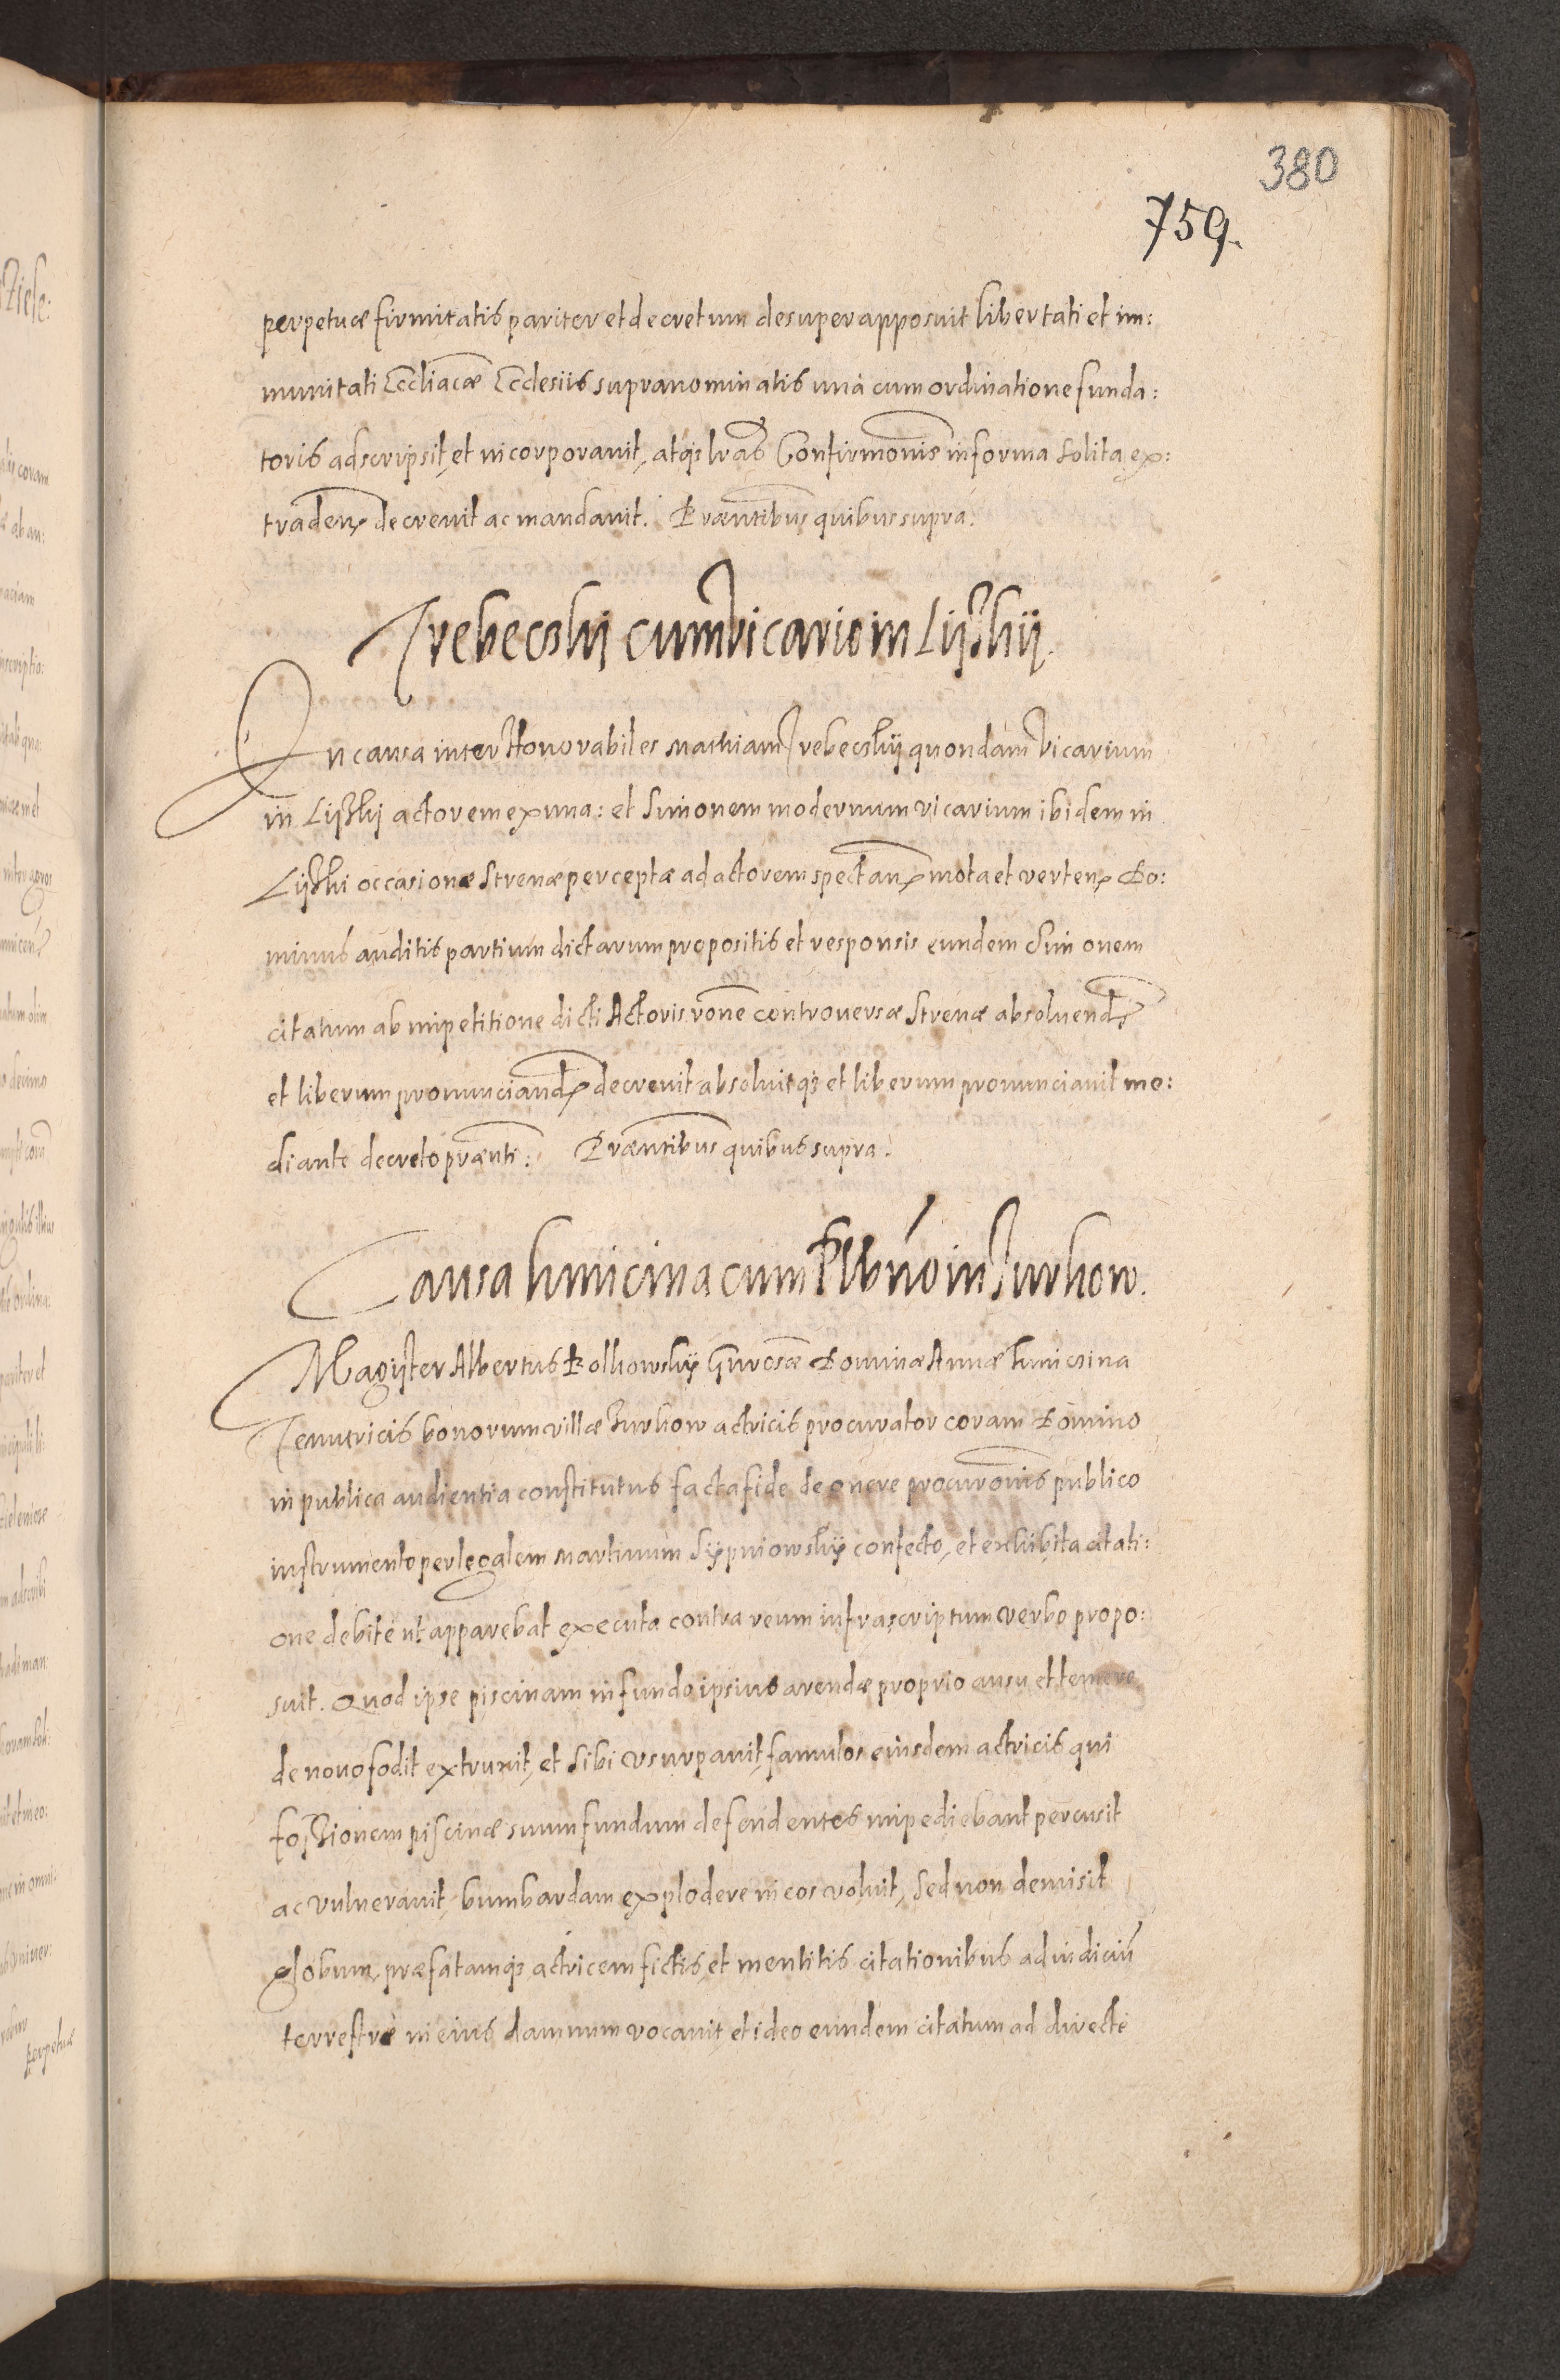 380
759.
perpetuæ firmitatis pariter et decretum desuper apposuit libertati et im:
munitati Eccliacæ Ecclesiis supranominatis una cum ordinatione funda:
toris adscripsit, et incorporavit, atq; lras Confirmonis in forma solita ex:
traden decrevit ac mandavit. Præntibus quibus supra.
Trebecsky cum Vicario in Lijsky.
In causa inter Honorabiles Mathiam Trebecsky quondam Vicarium
in Lijsky actorem ex una: et Simonem modernum vicarium ibidem in
Lijski occasione strenæ perceptæ ad actorem spectan mota et verten Do:
minus auditis partium dictarum propositis et responsis eundem Simonem
citatum ab impetitione dicti Actoris rone controversæ strenæ absolvend
et liberum pronunciand decrevit absolvitq; et liberum pronunciavit me:
diante decreto prænti: Præntibus quibus supra.
Causa Kmicina cum Plbno in Turkow.
Magister Albertus Polkowsky Gnrosæ Dominæ Annæ Kmicsina
Tenutricis bonorum villæ Turkow actricis procurator coram Domino
in publica audientia constitutus facta fide de onere procuronis publico
instrumento per legalem Martinum Sÿpniowskÿ confecto, et exhibita citati:
one debite ut apparebat executa contra reum infrascriptum verbo propo:
suit. Quod ipse piscinam in fundo ipsius arendæ proprio ausu et temere
de novo fodit extruxit, et sibi usurpavit, famulos eiusdem actricis qui
fossionem piscinæ suum fundum defendentes impediebant percusit
ac vulneravit, bumbardam explodere in eos voluit, sed non demisit
globum, præfatamq; actricem fictis, et mentitis citationibus ad iudiciũ
terrestre in eius damnum vocavit, et ideo eundem citatum ad directe